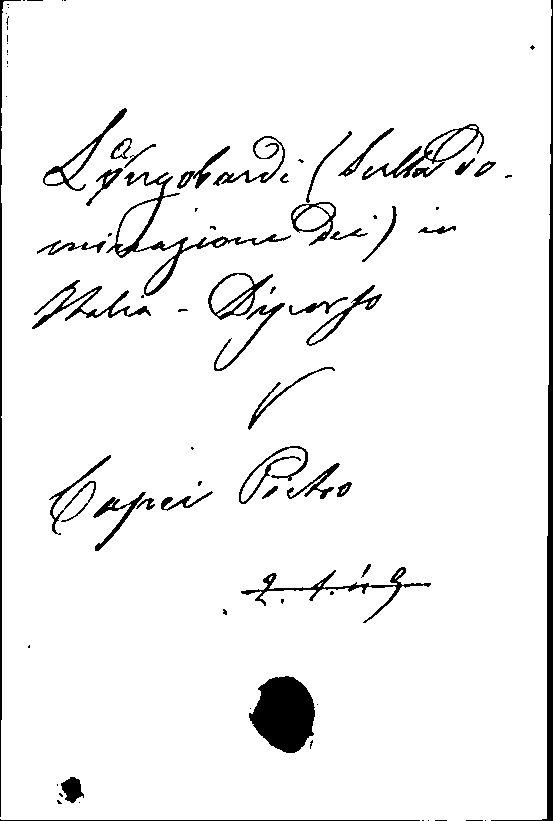 Longobardi (Sulla do-
minazione dei) in
Italia - Discorso
V
Capei Pietro
2. 1. 49